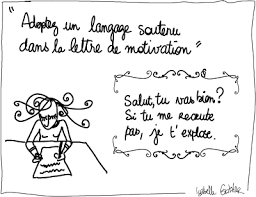 "Adoptez un langage soutenu
dans la lettre de motivation"
Salut, tu vas bien?
Si tu me recrute
pas, je t'explose.
Isabelle